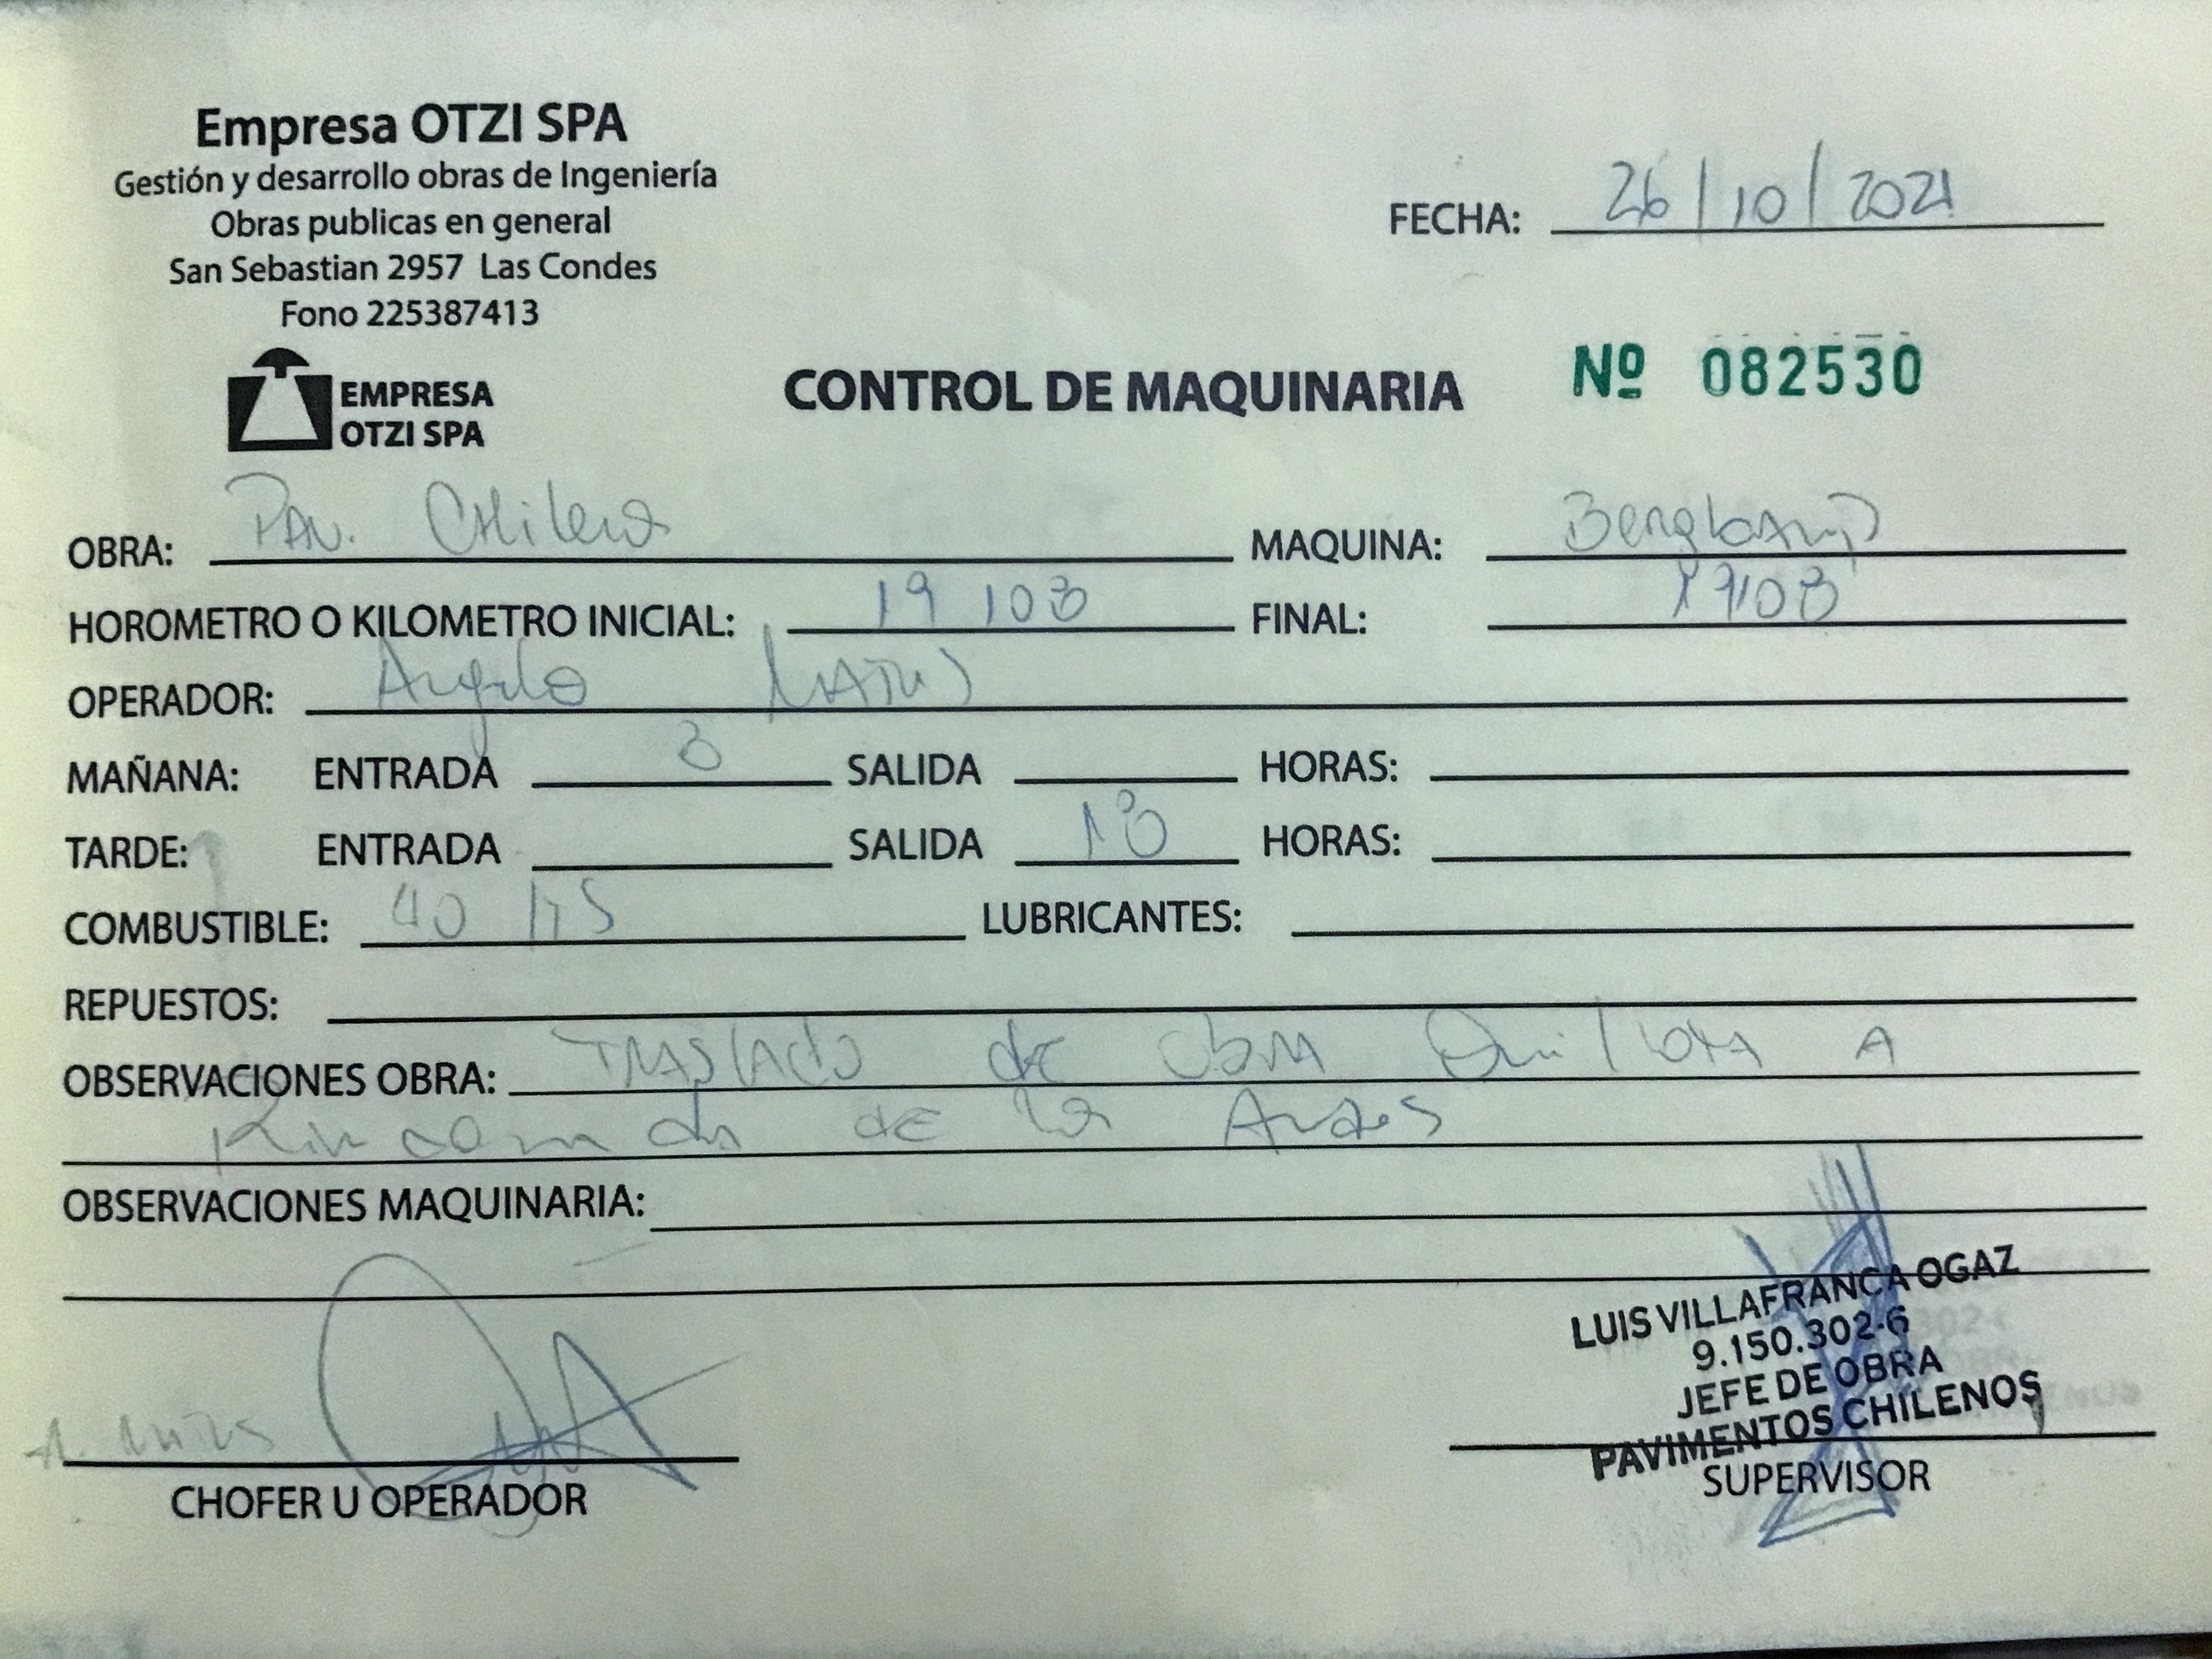 Empresa OTZI SPA
Gestión y desarrollo obras de Ingeniería
Obras publicas en general
San Sebastian 2957 Las Condes
Fono 225387413
EMPRESA
OTZI SPA
FECHA: 26/10/2021
CONTROL DE MAQUINARIA Nº 082530
OBRA: Pav. Chilena MAQUINA:
HOROMETRO O KILOMETRO INICIAL: 19 108 FINAL:
OPERADOR: Angelo
MAÑANA: ENTRADA 8 SALIDA HORAS:
TARDE: ENTRADA SALIDA 18 HORAS:
COMBUSTIBLE: 40 lts LUBRICANTES:
REPUESTOS:
OBSERVACIONES OBRA: TRASLADO de ObRA Quillota A
de los Andes
OBSERVACIONES MAQUINARIA:
LUIS VILLAFRANCA OGAZ
9.150.302-6
JEFE DE OBRA
PAVIMENTOS CHILENOS
CHOFER U OPERADOR
SUPERVISOR